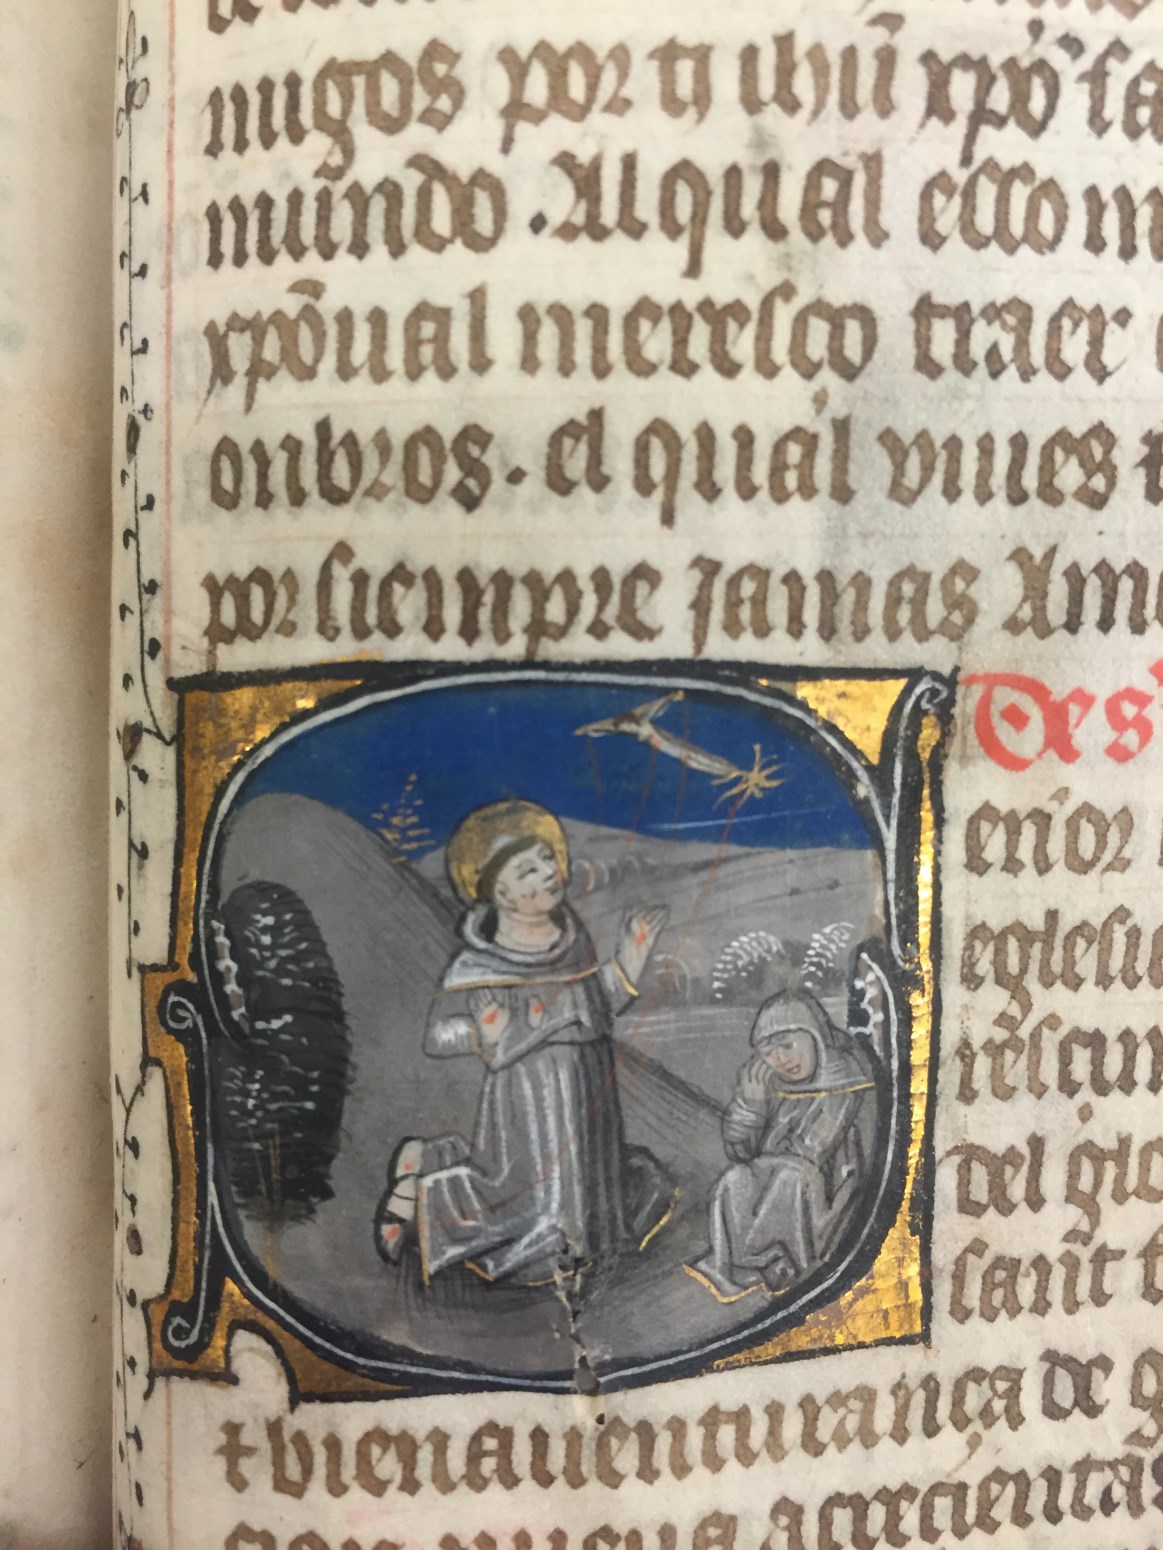 migos por ti ihū xpō sa
mundo. Al qual esso m
xpōual meresco traer
onbros. el qual viues
por siempre jamas Ame
Des
enor
eglesia
del glo
sant f
τ bienauenturança de g
acrecienta